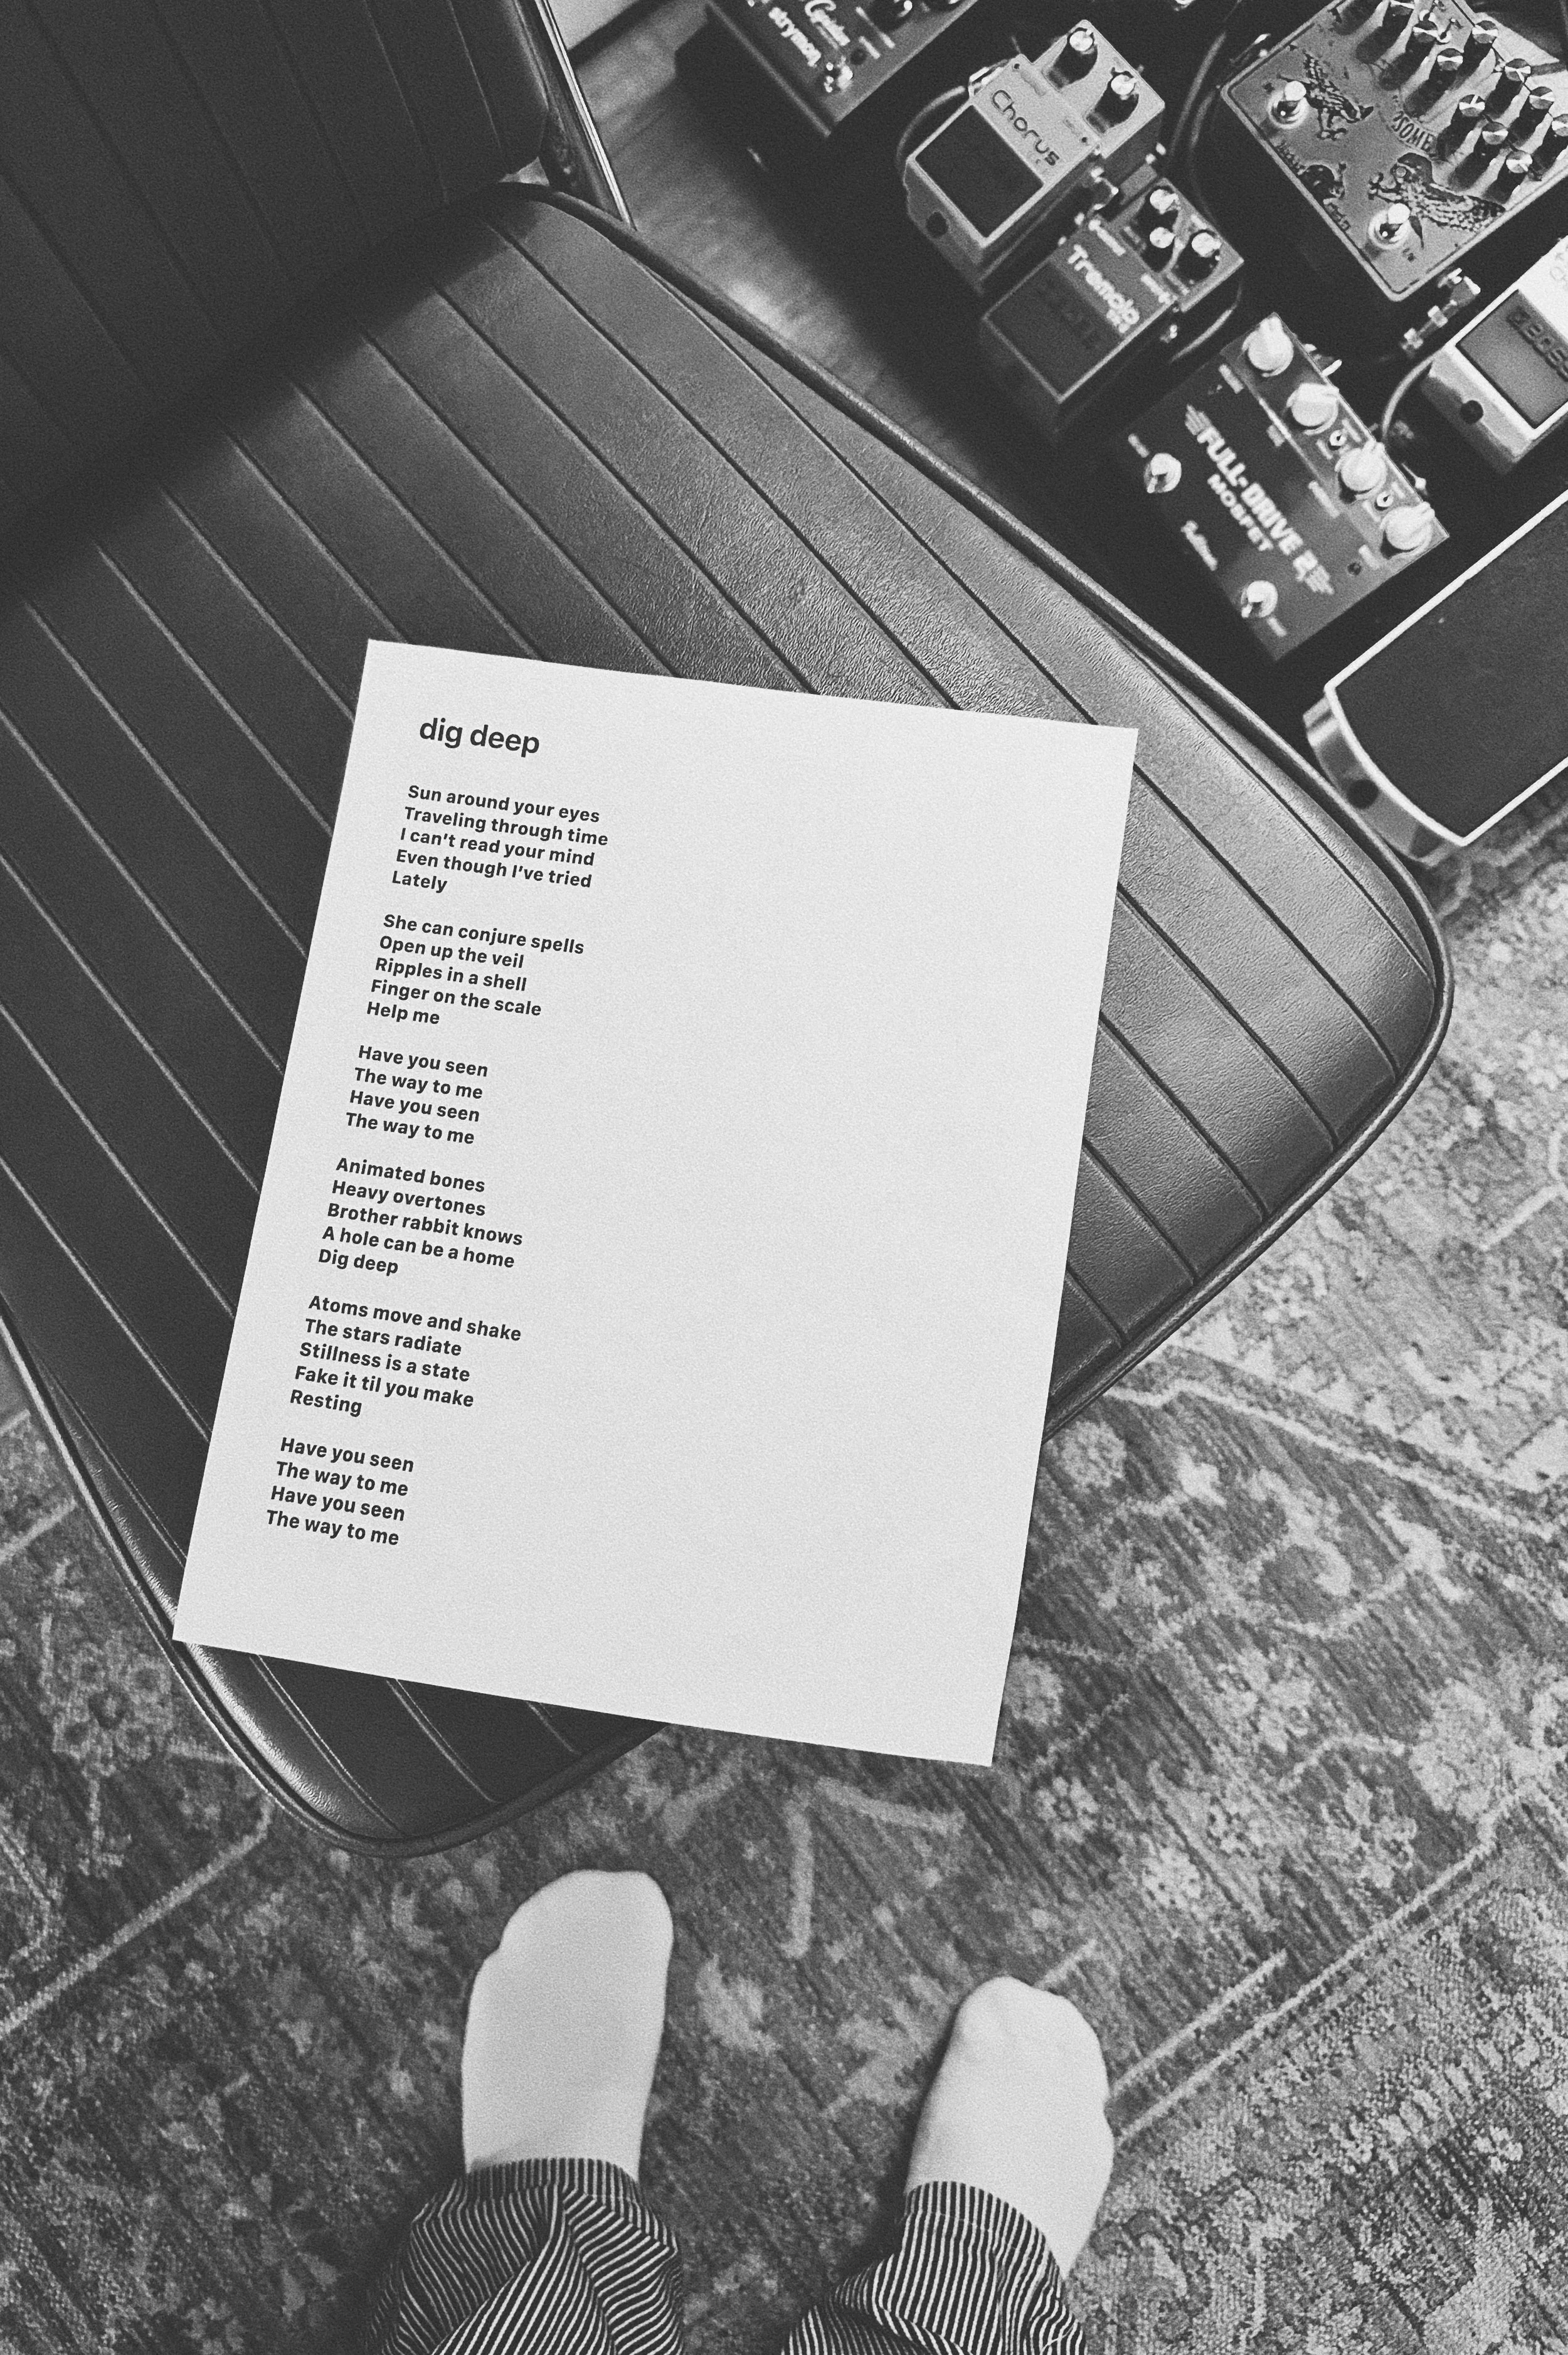 strymon
Chorus
Tremolo
FULL-DRIVE 2
MOSFET
BOSS
dig deep
Sun around your eyes
Traveling through time
I can't read your mind
Even though I've tried
Lately
She can conjure spells
Open up the veil
Ripples in a shell
Finger on the scale
Help me
Have you seen
The way to me
Have you seen
The way to me
Animated bones
Heavy overtones
Brother rabbit knows
A hole can be a home
Dig deep
Atoms move and shake
The stars radiate
Stillness is a state
Fake it til you make
Resting
Have you seen
The way to me
Have you seen
The way to me